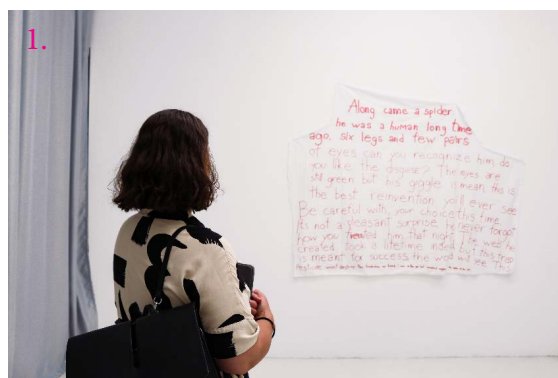 1.
Along came a spider
he was a human long time
ago. six legs and few pairs
of eyes can you recognize him, do
you like the disguise? The eyes are
still green but his giggle is mean this is
the best reinvention you'll ever see
Be careful with your choice this time
its not a pleasant surprise he never forgot
how you treated him that night, he was
created took a lifetime indeed this
is meant for success the world will see. This